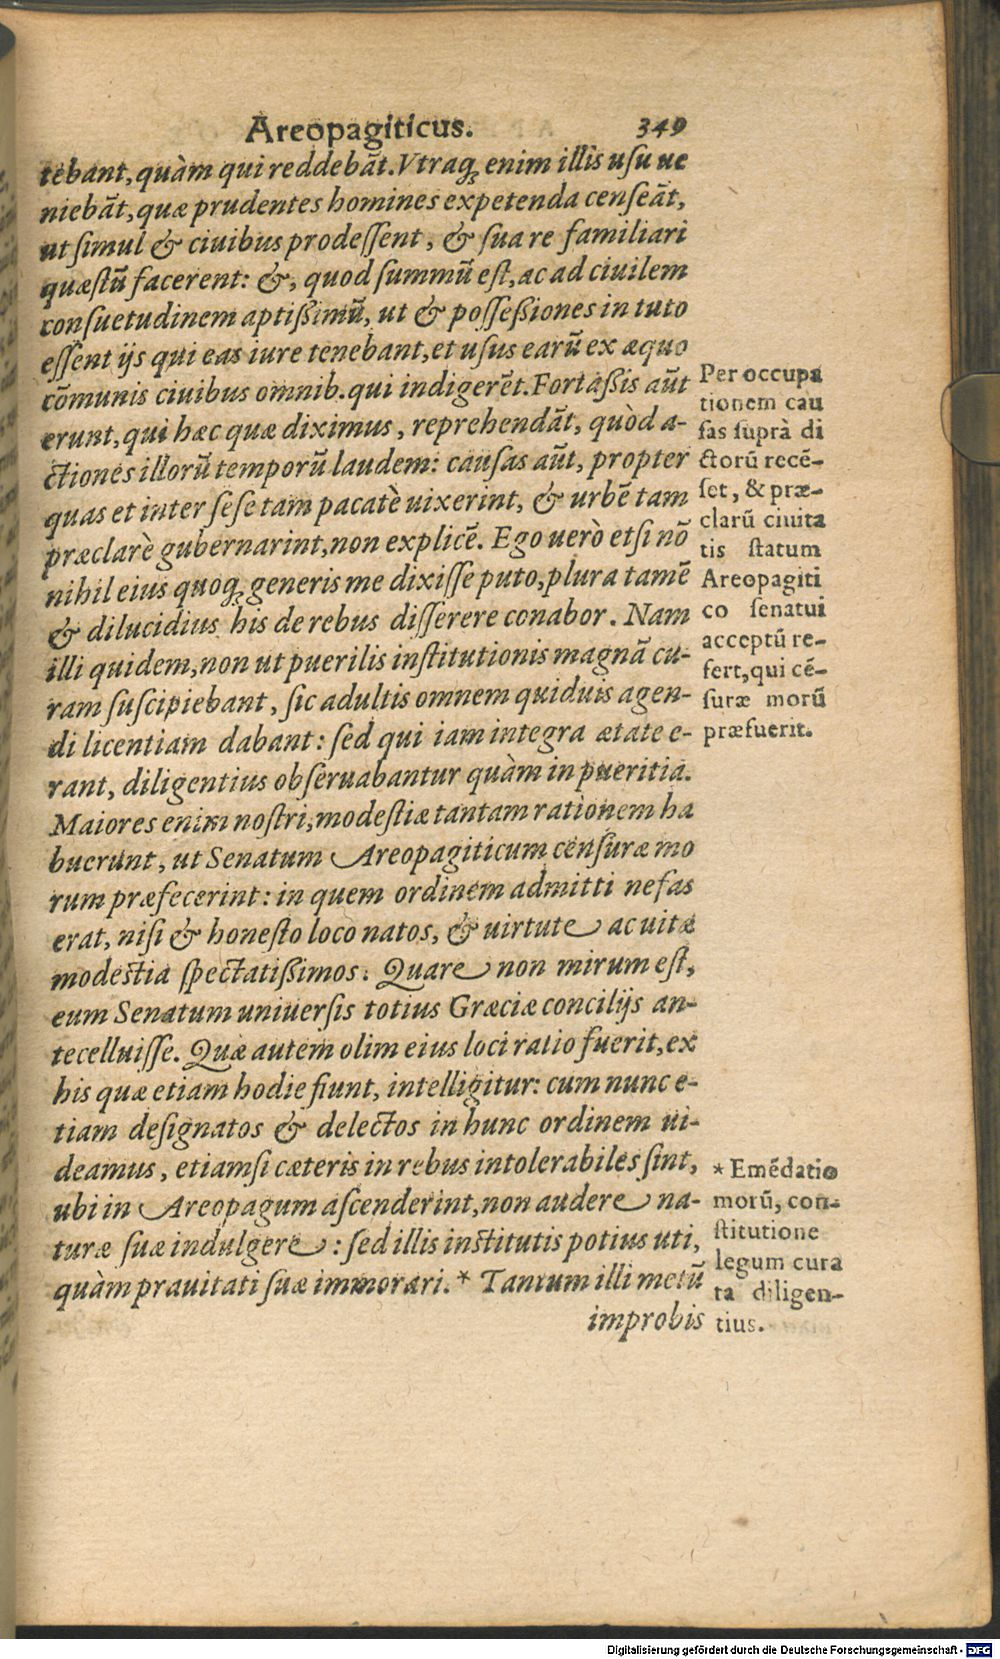 Areopagiticus. 349
tebant, quàm qui reddebãt. Vtraq; enim illis usu ue
niebãt, quæ prudentes homines expetenda censeãt,
ut simul & ciuibus prodeſſent, & sua re familiari
quæstũ facerent: &, quod summũ est, ac ad ciuilem
consuetudinem aptißimũ, ut & poſſeßiones in tuto
eſſent ijs qui eas iure tenebant, et usus earũ ex æquo
cõmunis ciuibus omnib. qui indigerẽt. Fortaßis aũt
erunt, qui hæc quæ diximus, reprehendãt, quòd a-
ctiones illorũ temporũ laudem: causas aũt, propter
quas et inter sese tam pacatè uixerint, & urbẽ tam
præclarè gubernarint, non explicẽ. Ego uerò etsi nõ
nihil eius quoq; generis me dixiſſe puto, plura tamẽ
& dilucidius his de rebus diſſerere conabor. Nam
illi quidem, non ut puerilis institutionis magnã cu-
ram suscipiebant, sic adultis omnem quiduis agen-
di licentiam dabant: sed qui iam integra ætate e-
rant, diligentius obseruabantur quàm in pueritia.
Maiores enim nostri, modestiæ tantam rationem ha
buerunt, ut Senatum Areopagiticum censuræ mo
rum præfecerint: in quem ordinem admitti nefas
erat, nisi & honesto loco natos, & uirtute ac uitæ
modestia spectatißimos. Quare non mirum est,
eum Senatum uniuersis totius Græciæ concilijs an-
tecelluiſſe. Quæ autem olim eius loci ratio fuerit, ex
his quæ etiam hodie fiunt, intelligitur: cum nunc e-
tiam designatos & delectos in hunc ordinem ui-
deamus, etiamsi cæteris in rebus intolerabiles sint,
ubi in Areopagum ascenderint, non audere na-
turæ suæ indulgere: sed illis institutis potius uti,
quàm prauitati suæ immorari. * Tantum illi metũ
improbis
Per occupa
tionem cau
sas suprà di
ctorũ recẽ-
set, & præ-
clarũ ciuita
tis statum
Areopagiti
co senatui
acceptũ re-
fert, qui cẽ-
suræ morũ
præfuerit.
* Emẽdatio
morũ, con-
stitutione
legum cura
ta diligen-
tius.
Digitalisierung gefördert durch die Deutsche Forschungsgemeinschaft - DFG